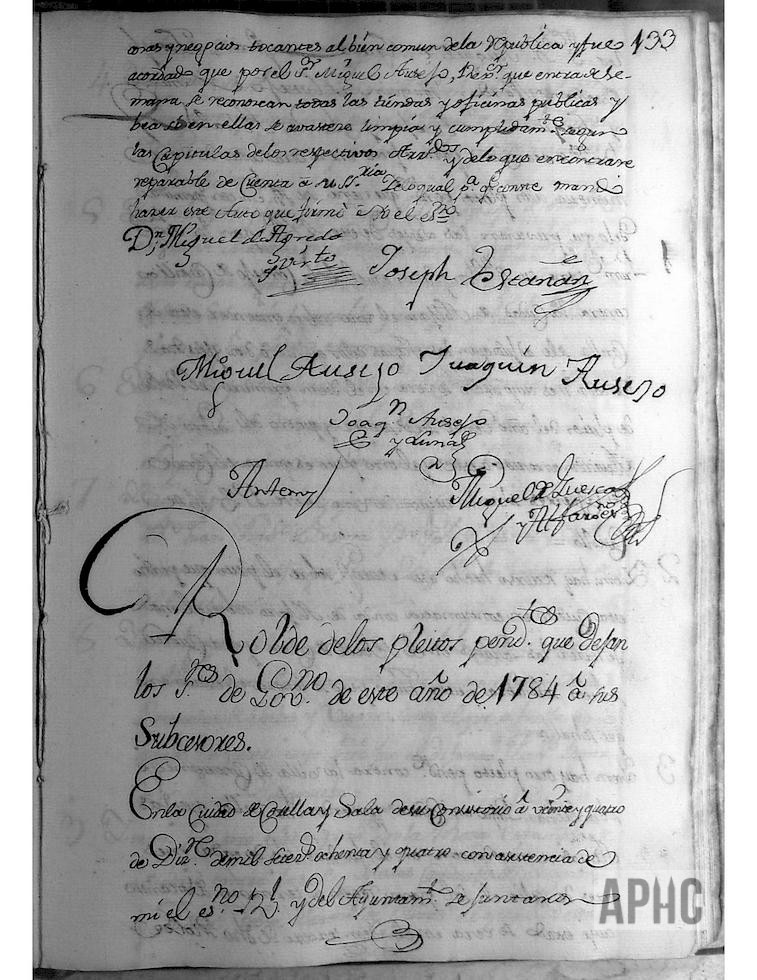 cosas y negocios tocantes al bien comun dela Republica y fue 133
acordado que por el Sr. Miguel Ausejo, Rexor. que entra de Se-
mana se reconozcan todas las tiendas y oficinas publicas y
bea si en ellas se avastece limpia y cumplidamte. segun
las Capitulas delos respectivos Arrdos. y delo que encontrare
reparable de Cuenta a su Sria. Delo qual pa. q. conste mando
hazer este Auto que firmò è Yo el Sno.
Dn. Miguel de Agreda
Joseph Escañan
Miguel Ausejo Juaquin Ausejo
Joaqn. Ausejo
y Luna
Antemi
Miguel de Luesca
Rolde delos pleitos pendtes. que dejan
los Ses. de Govno. de este año de 1784 â sus
Subcesores.
En la Ciudad de Corella y Sala de su Consistorio â veinte y quatro
de Dizre. de mil setezs. ochenta y quatro con asistencia de
mi el esno. Rl. y del Ayuntamto. se juntaron
APHC